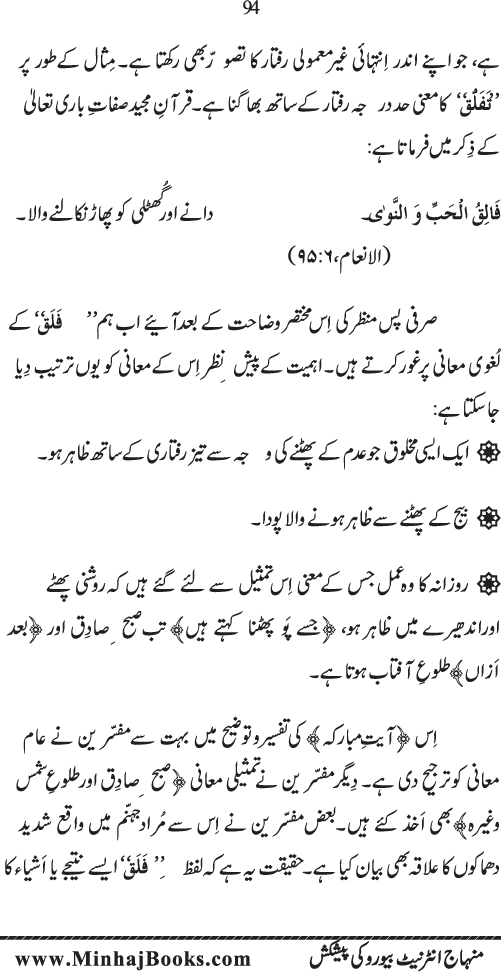 94
ہے، جو اپنے اندر اِنتہائی غیرمعمولی رفتار کا تصوّر بھی رکھتا ہے۔ مِثال کے طور پر
’’تَفَلُّق‘‘ کا معنی حد درجہ رفتار کے ساتھ بھاگنا ہے۔ قرآنِ مجید صفاتِ باری تعالیٰ
کے ذِکر میں فرماتا ہے:
فَالِقُ الْحَبِّ وَ النَّوٰى۔ دانے اور گُھٹلی کو پھاڑ نکالنے والا۔
(الانعام، ۶:۹۵)
صرفی پس منظر کی اِس مختصر وضاحت کے بعد آیئے اب ہم ’’فَلَق‘‘ کے
لُغوی معانی پر غور کرتے ہیں۔ اہمیت کے پیشِ نظر اِس کے معانی کو یوں ترتیب دِیا
جا سکتا ہے:
ایک ایسی مخلوق جو عدم کے پھٹنے کی وجہ سے تیز رفتاری کے ساتھ ظاہر ہو۔
بیج کے پھٹنے سے ظاہر ہونے والا پودا۔
روزانہ کا وہ عمل جس کے معنی اِس تمثیل سے لئے گئے ہیں کہ روشنی پھٹے
اور اندھیرے میں ظاہر ہو، ﴿جسے پَو پھٹنا کہتے ہیں﴾ تب صبحِ صادِق اور ﴿بعد
اَزاں﴾ طلوعِ آفتاب ہوتا ہے۔
اِس ﴿آیتِ مبارکہ﴾ کی تفسیر و توضیح میں بہت سے مفسّرین نے عام
معانی کو ترجیح دی ہے۔ دِیگر مفسّرین نے تمثیلی معانی ﴿صبحِ صادِق اور طلوعِ شمس
وغیرہ﴾ بھی اَخذ کئے ہیں۔ بعض مفسّرین نے اِس سے مُراد جہنّم میں واقع شدید
دھماکوں کا علاقہ بھی بیان کیا ہے۔ حقیقت یہ ہے کہ لفظِ ’’فَلَق‘‘ ایسے نتیجے یا اَشیاء کا
www.MinhajBooks.com منہاج انٹرنیٹ بیورو کی پیشکش